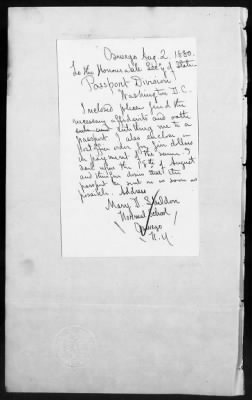 Oswego Aug 2, 1880.
To the Honourable Sec'y of State
Passport Division
Washington D.C.
Inclosed please find the
necessary affidavits and oath
entitling me to a
passport. I also enclose a
post office order for five dollars
in payment of the same. I
sail upon the of August
and therefore desire that the
passport be sent me as soon as
possible. Address
Mary D. Sheldon
Normal School
Oswego
N.Y.